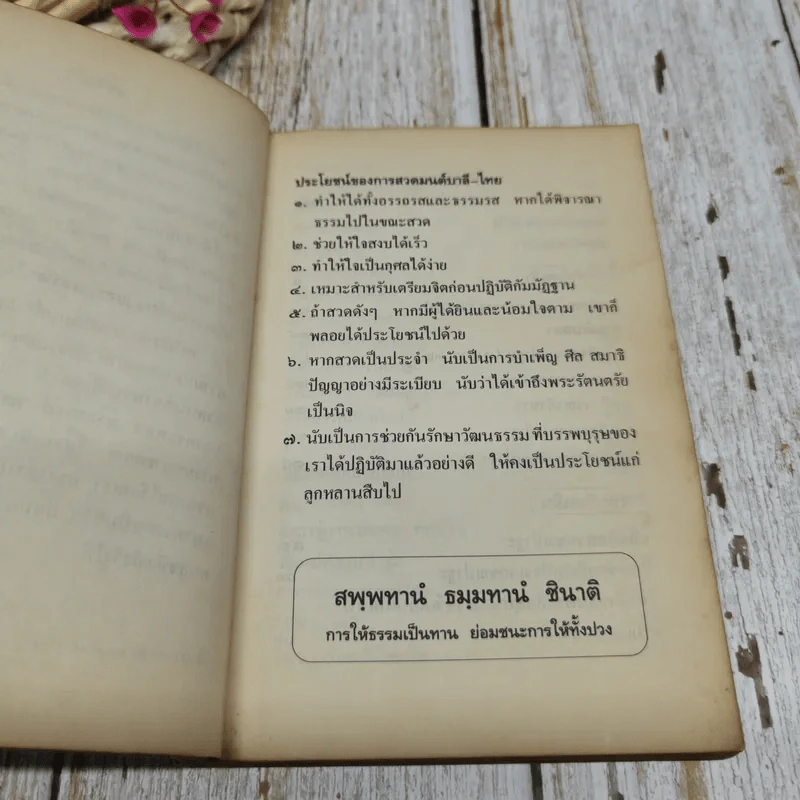 ประโยชน์ของการสวดมนต์บาลี-ไทย
๑. ทำให้ได้ทั้งอรรถรสและธรรมรส หากได้พิจารณา
ธรรมไปในขณะสวด
๒. ช่วยให้ใจสงบได้เร็ว
๓. ทำให้ใจเป็นกุศลได้ง่าย
๔. เหมาะสำหรับเตรียมจิตก่อนปฏิบัติกัมมัฏฐาน
๕. ถ้าสวดดังๆ หากมีผู้ได้ยินและน้อมใจตาม เขาก็
พลอยได้ประโยชน์ไปด้วย
๖. หากสวดเป็นประจำ นับเป็นการบำเพ็ญ ศีล สมาธิ
ปัญญาอย่างมีระเบียบ นับว่าได้เข้าถึงพระรัตนตรัย
เป็นนิจ
๗. นับเป็นการช่วยกันรักษาวัฒนธรรม ที่บรรพบุรุษของ
เราได้ปฏิบัติมาแล้วอย่างดี ให้คงเป็นประโยชน์แก่
ลูกหลานสืบไป
สพฺพทานํ ธมฺมทานํ ชินาติ
การให้ธรรมเป็นทาน ย่อมชนะการให้ทั้งปวง